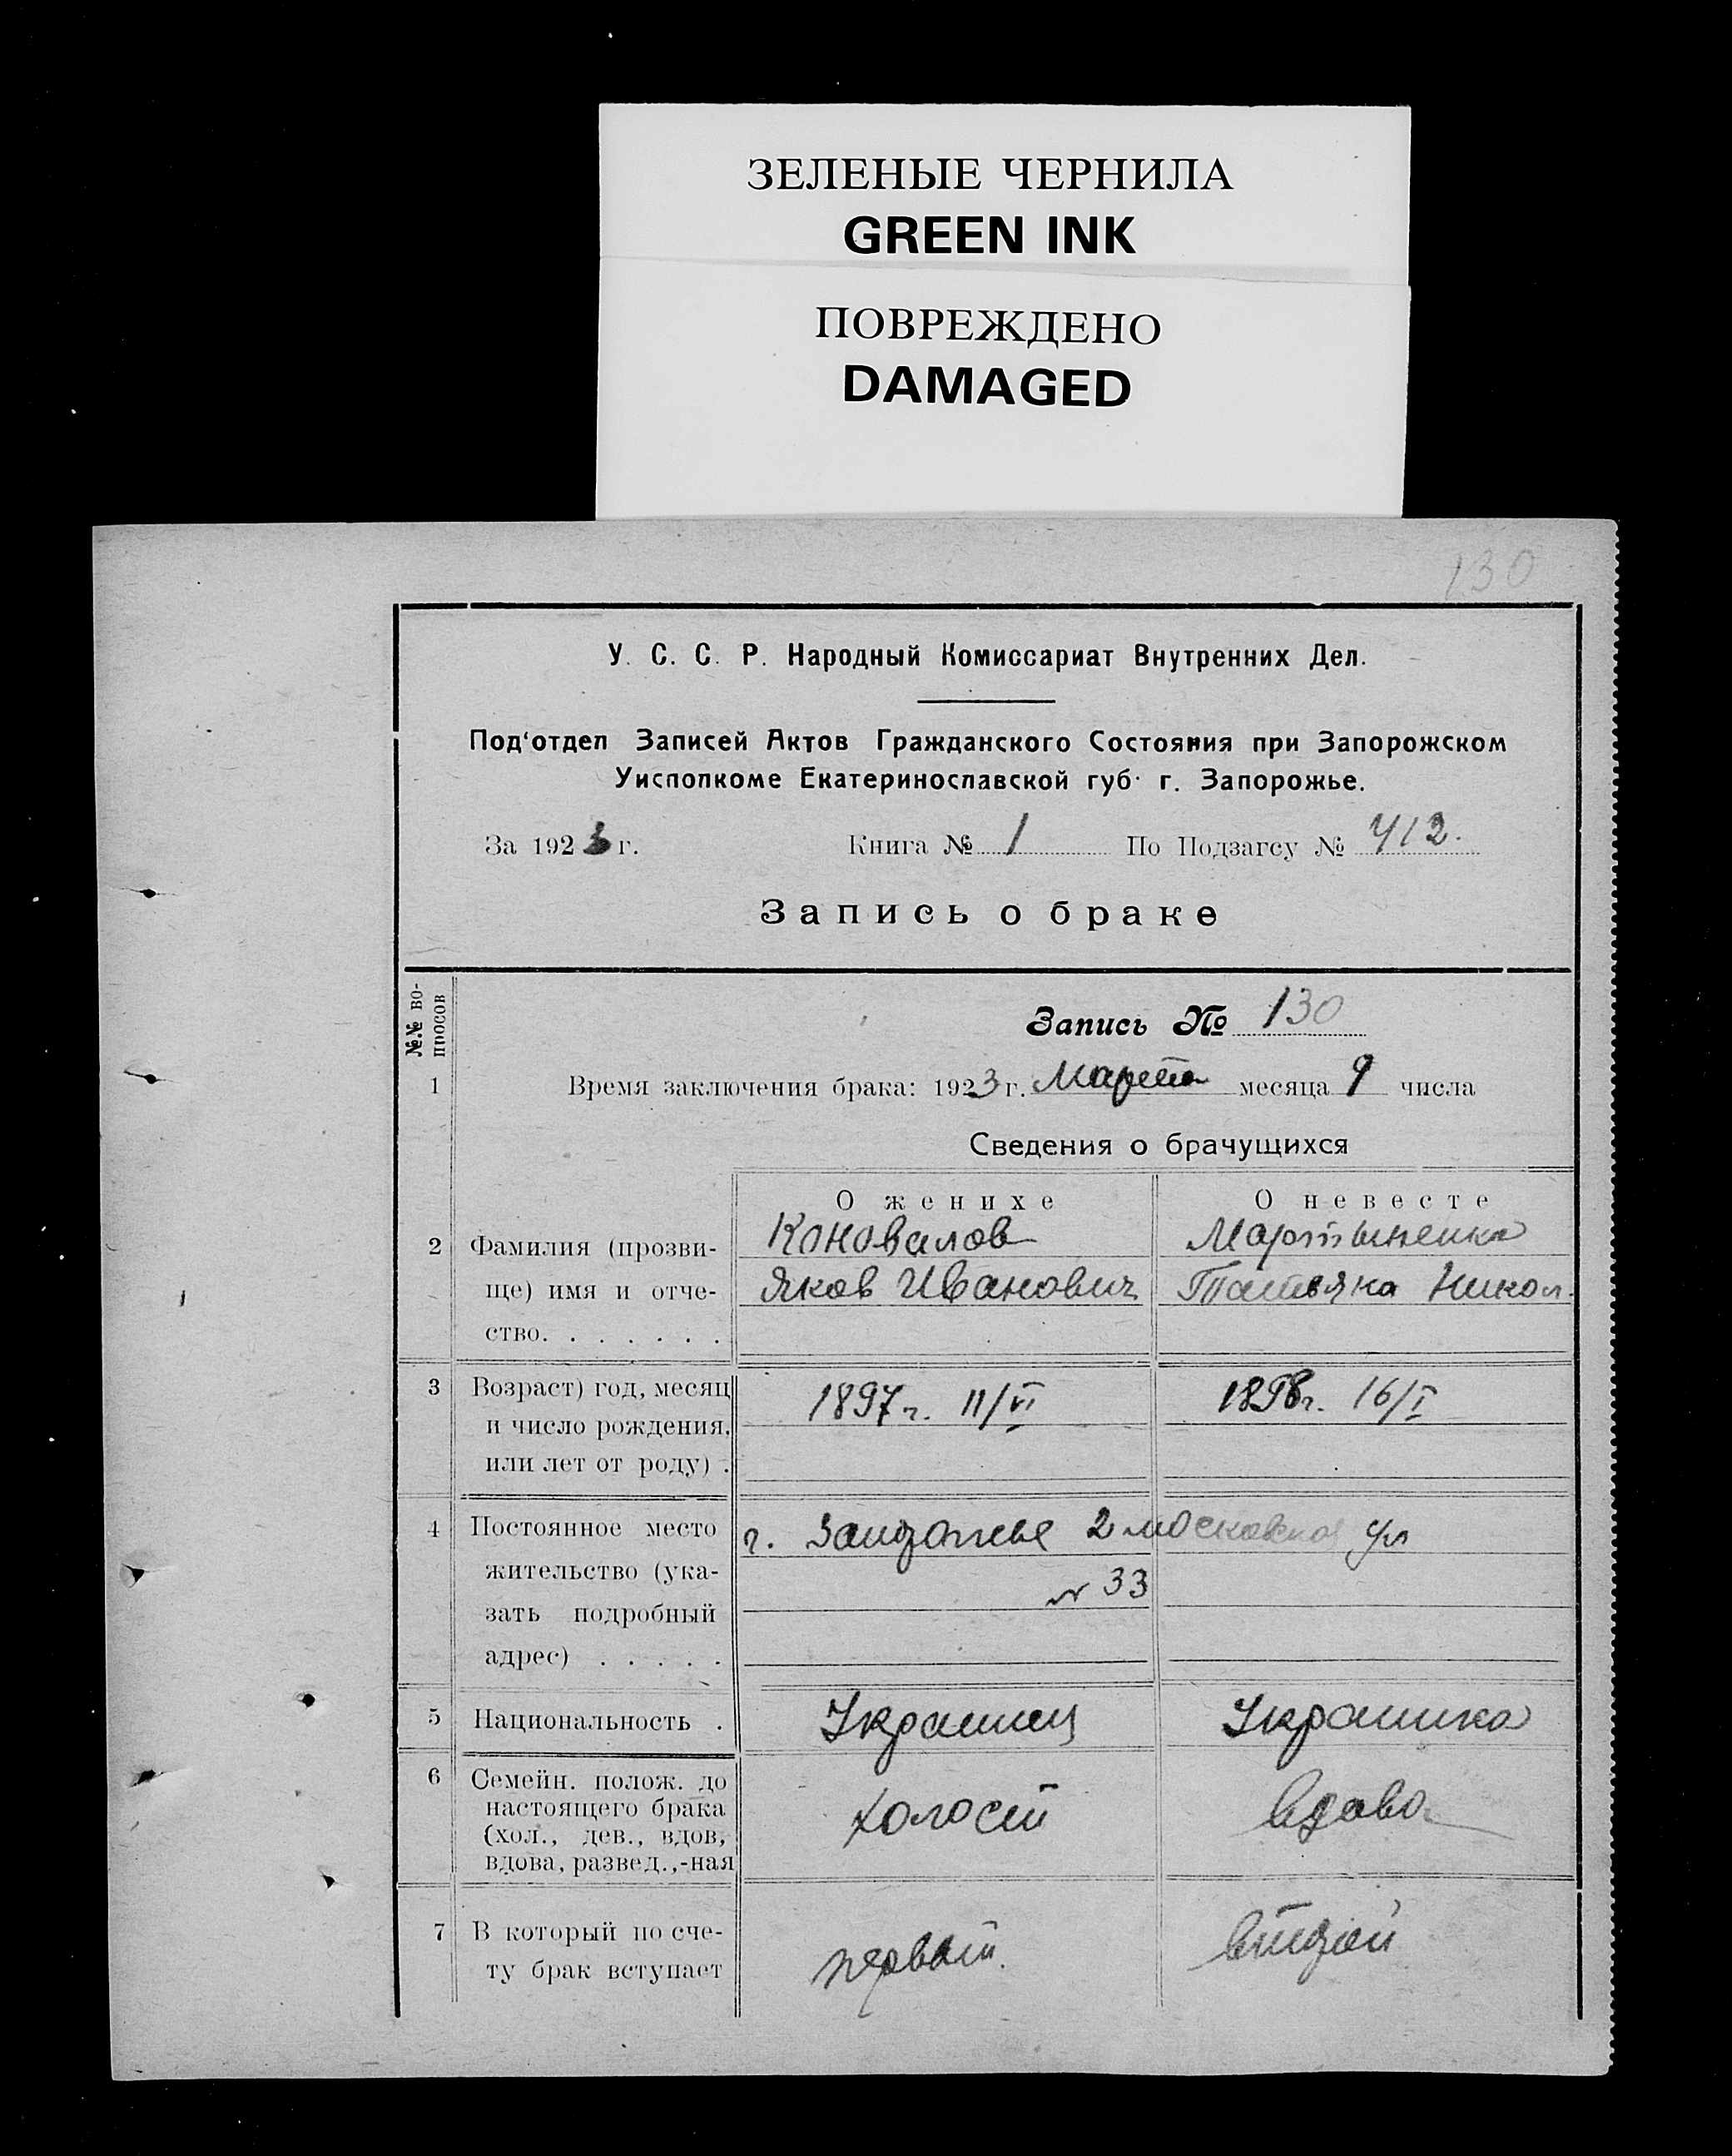 ЗЕЛЕНЫЕ ЧЕРНИЛА
GREEN INK
ПОВРЕЖДЕНО
DAMAGED
130
У. С. С. Р. Народный Комиссариат Внутренних Дел.
Под'отдел Записей Актов Гражданского Состояния при Запорожском
Уисполкоме Екатеринославской губ. г. Запорожье.
За 1923 г. Книга № 1 По Подзагсу № 412.
Запись о браке
№№ во-
просов
Запись № 130
1 Время заключения брака: 1923 г. Марта месяца 9 числа
Сведения о брачущихся
О женихе О невесте
2 Фамилия (прозви- Коновалов Мартыненко
ще) имя и отче- Яков Иванович Татьяна Никол.
ство. . . . . . .
3 Возраст) год, месяц 1897 г. 11/VI 1898 г. 16/I
и число рождения,
или лет от роду) .
4 Постоянное место г. Запорожье 2 московская ул
жительство (ука- № 33
зать подробный
адрес) . . . . .
5 Национальность . Украинец Украинка
6 Семейн. полож. до
настоящего брака холост вдова
(хол., дев., вдов,
вдова, развед.,-ная
7 В который по сче- первый. второй
ту брак вступает